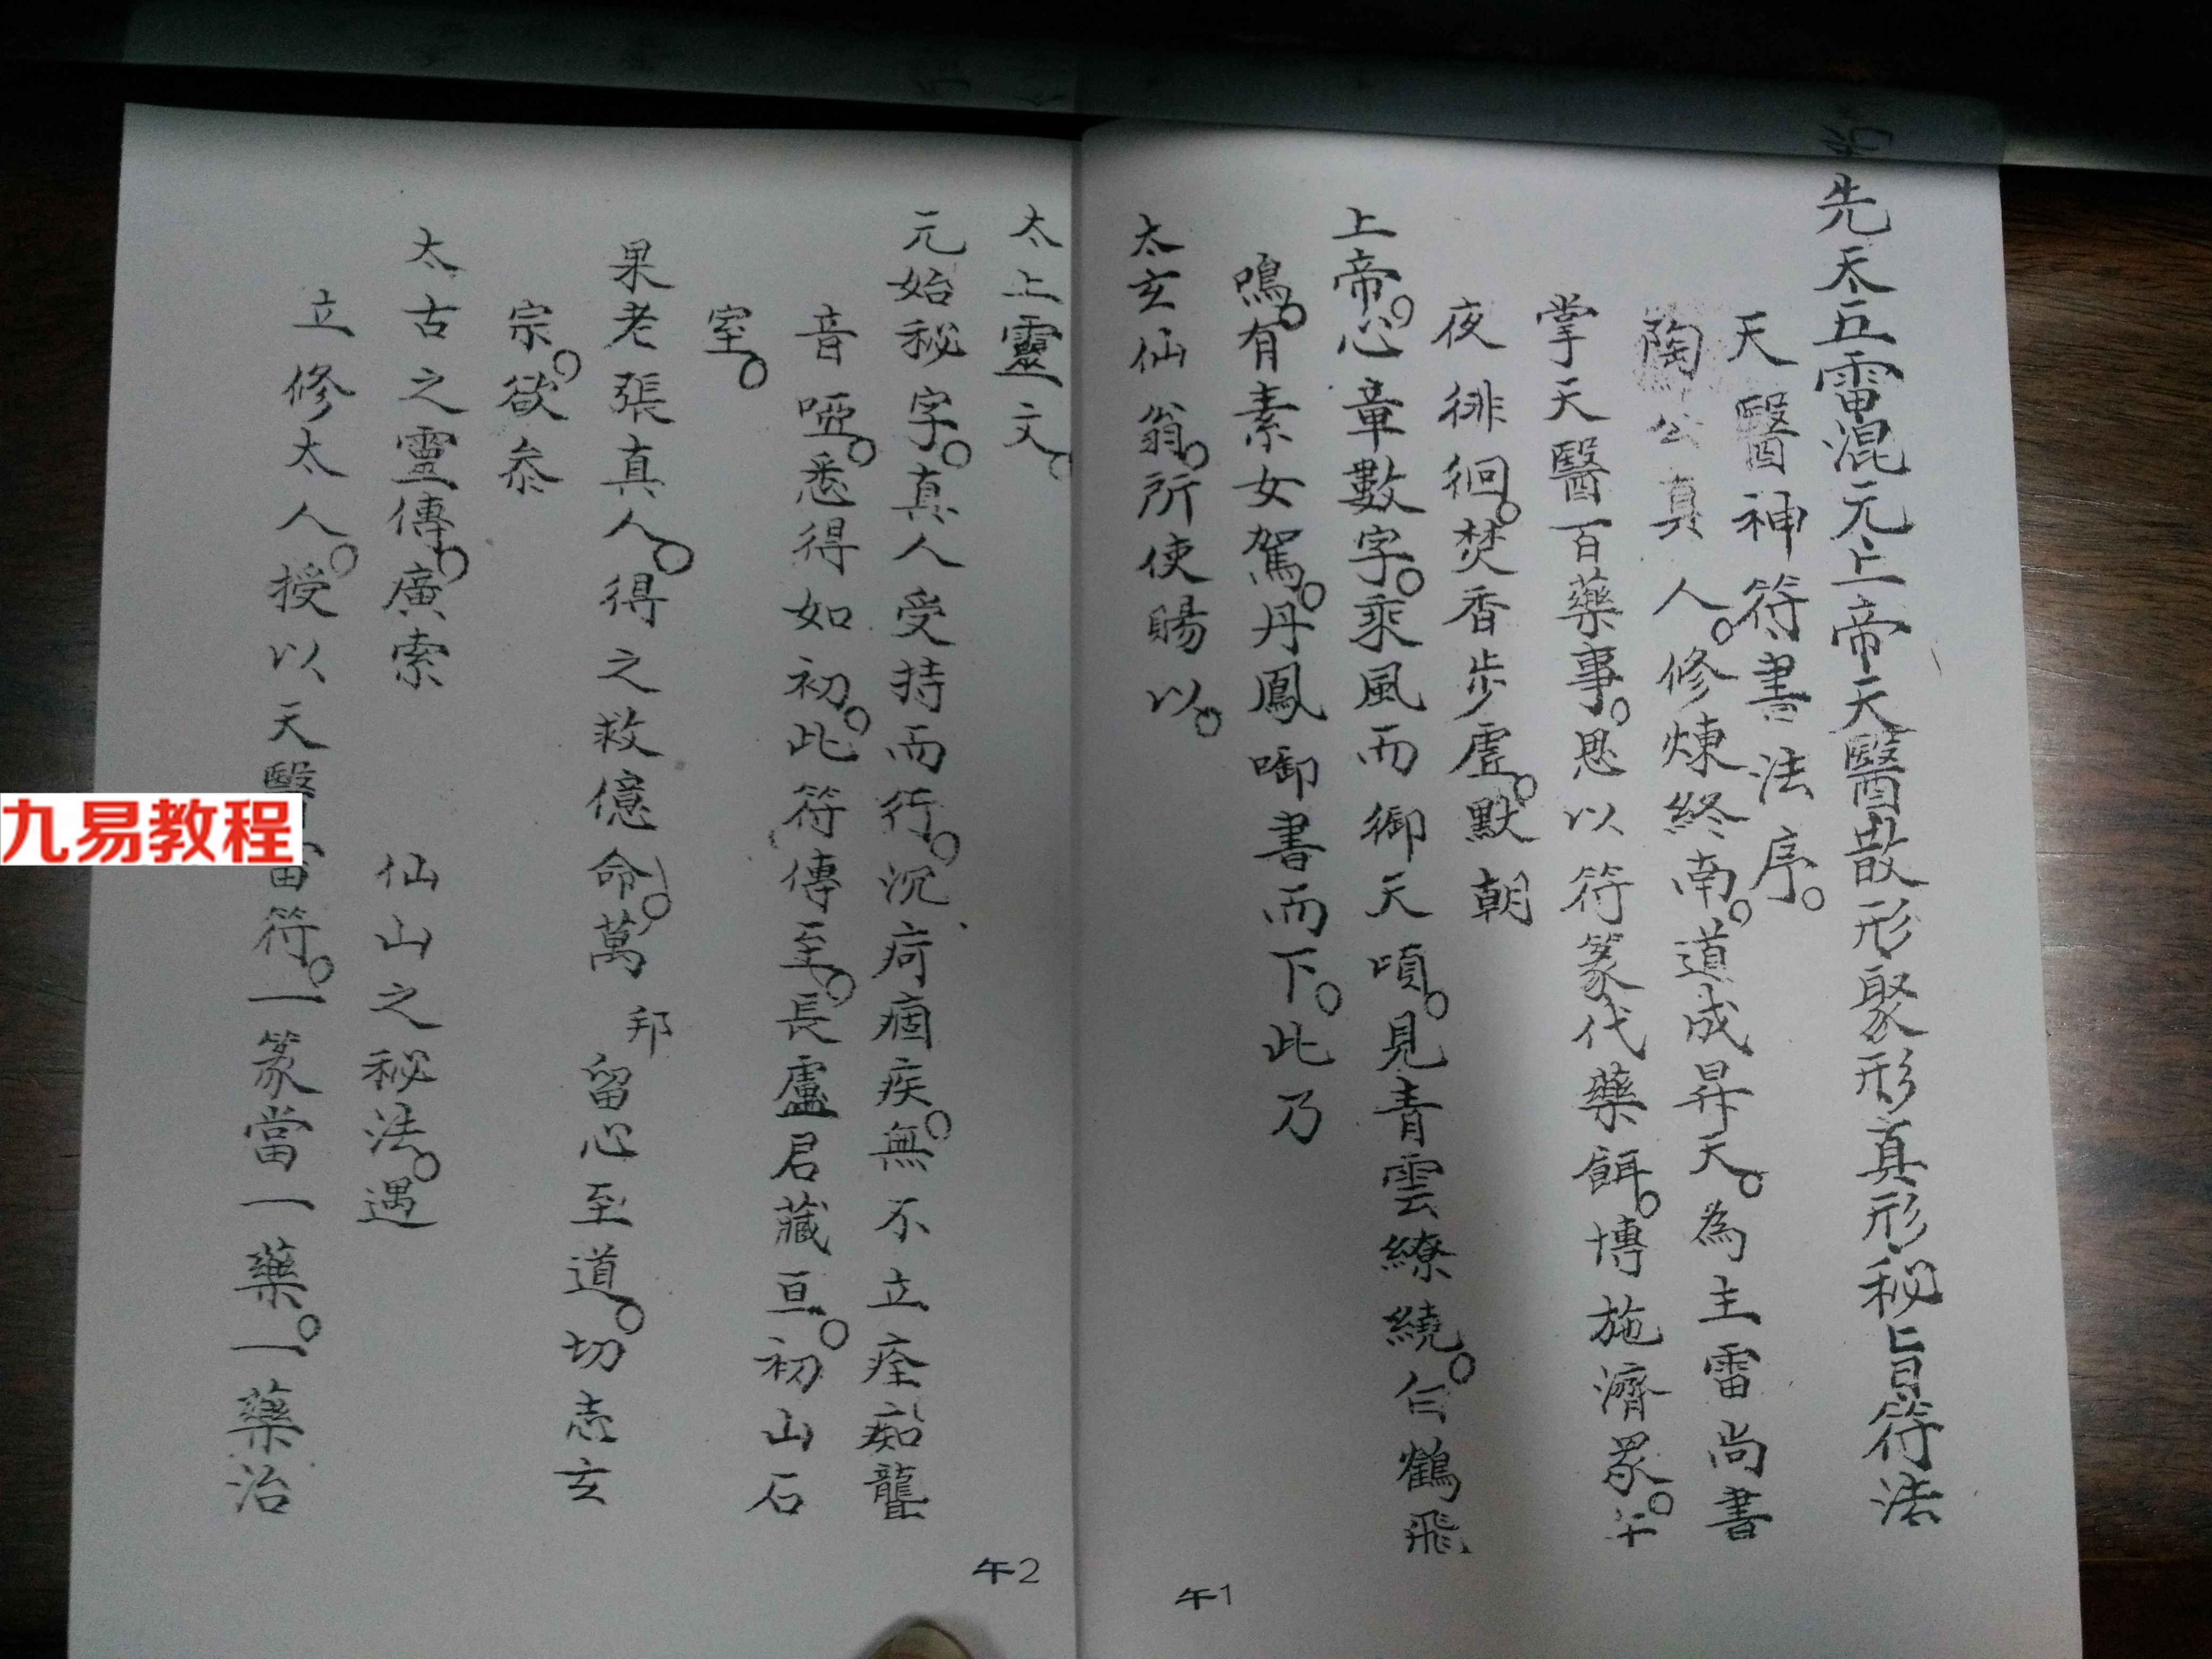 先天五雷混元上帝天醫散形聚形真形秘旨符法
天醫神符書法序。
陶公真人。修煉終南。道成昇天。為主雷尚書
掌天醫百藥事。思以符篆代藥餌。博施濟眾。午
夜徘徊。焚香步虛。默朝
上帝。心章數字。乘風而御天頃。見青雲繚繞。白鶴飛
鳴。有素女駕。丹鳳啣書而下。此乃
太玄仙翁。所使賜以。
太上靈文。
元始秘字。真人受持而行。沉疴痼疾。無不立痊痴聾
音啞。悉得如初。此符傳至。長盧君藏亘。初山石
室。
果老張真人。得之救億命。萬邦留心至道。切志玄
宗。欲叅
太古之靈傳。廣索 仙山之秘法。遇
立修太人。授以天醫雷符。一篆當一藥。一藥治
午1
午2
九易教程